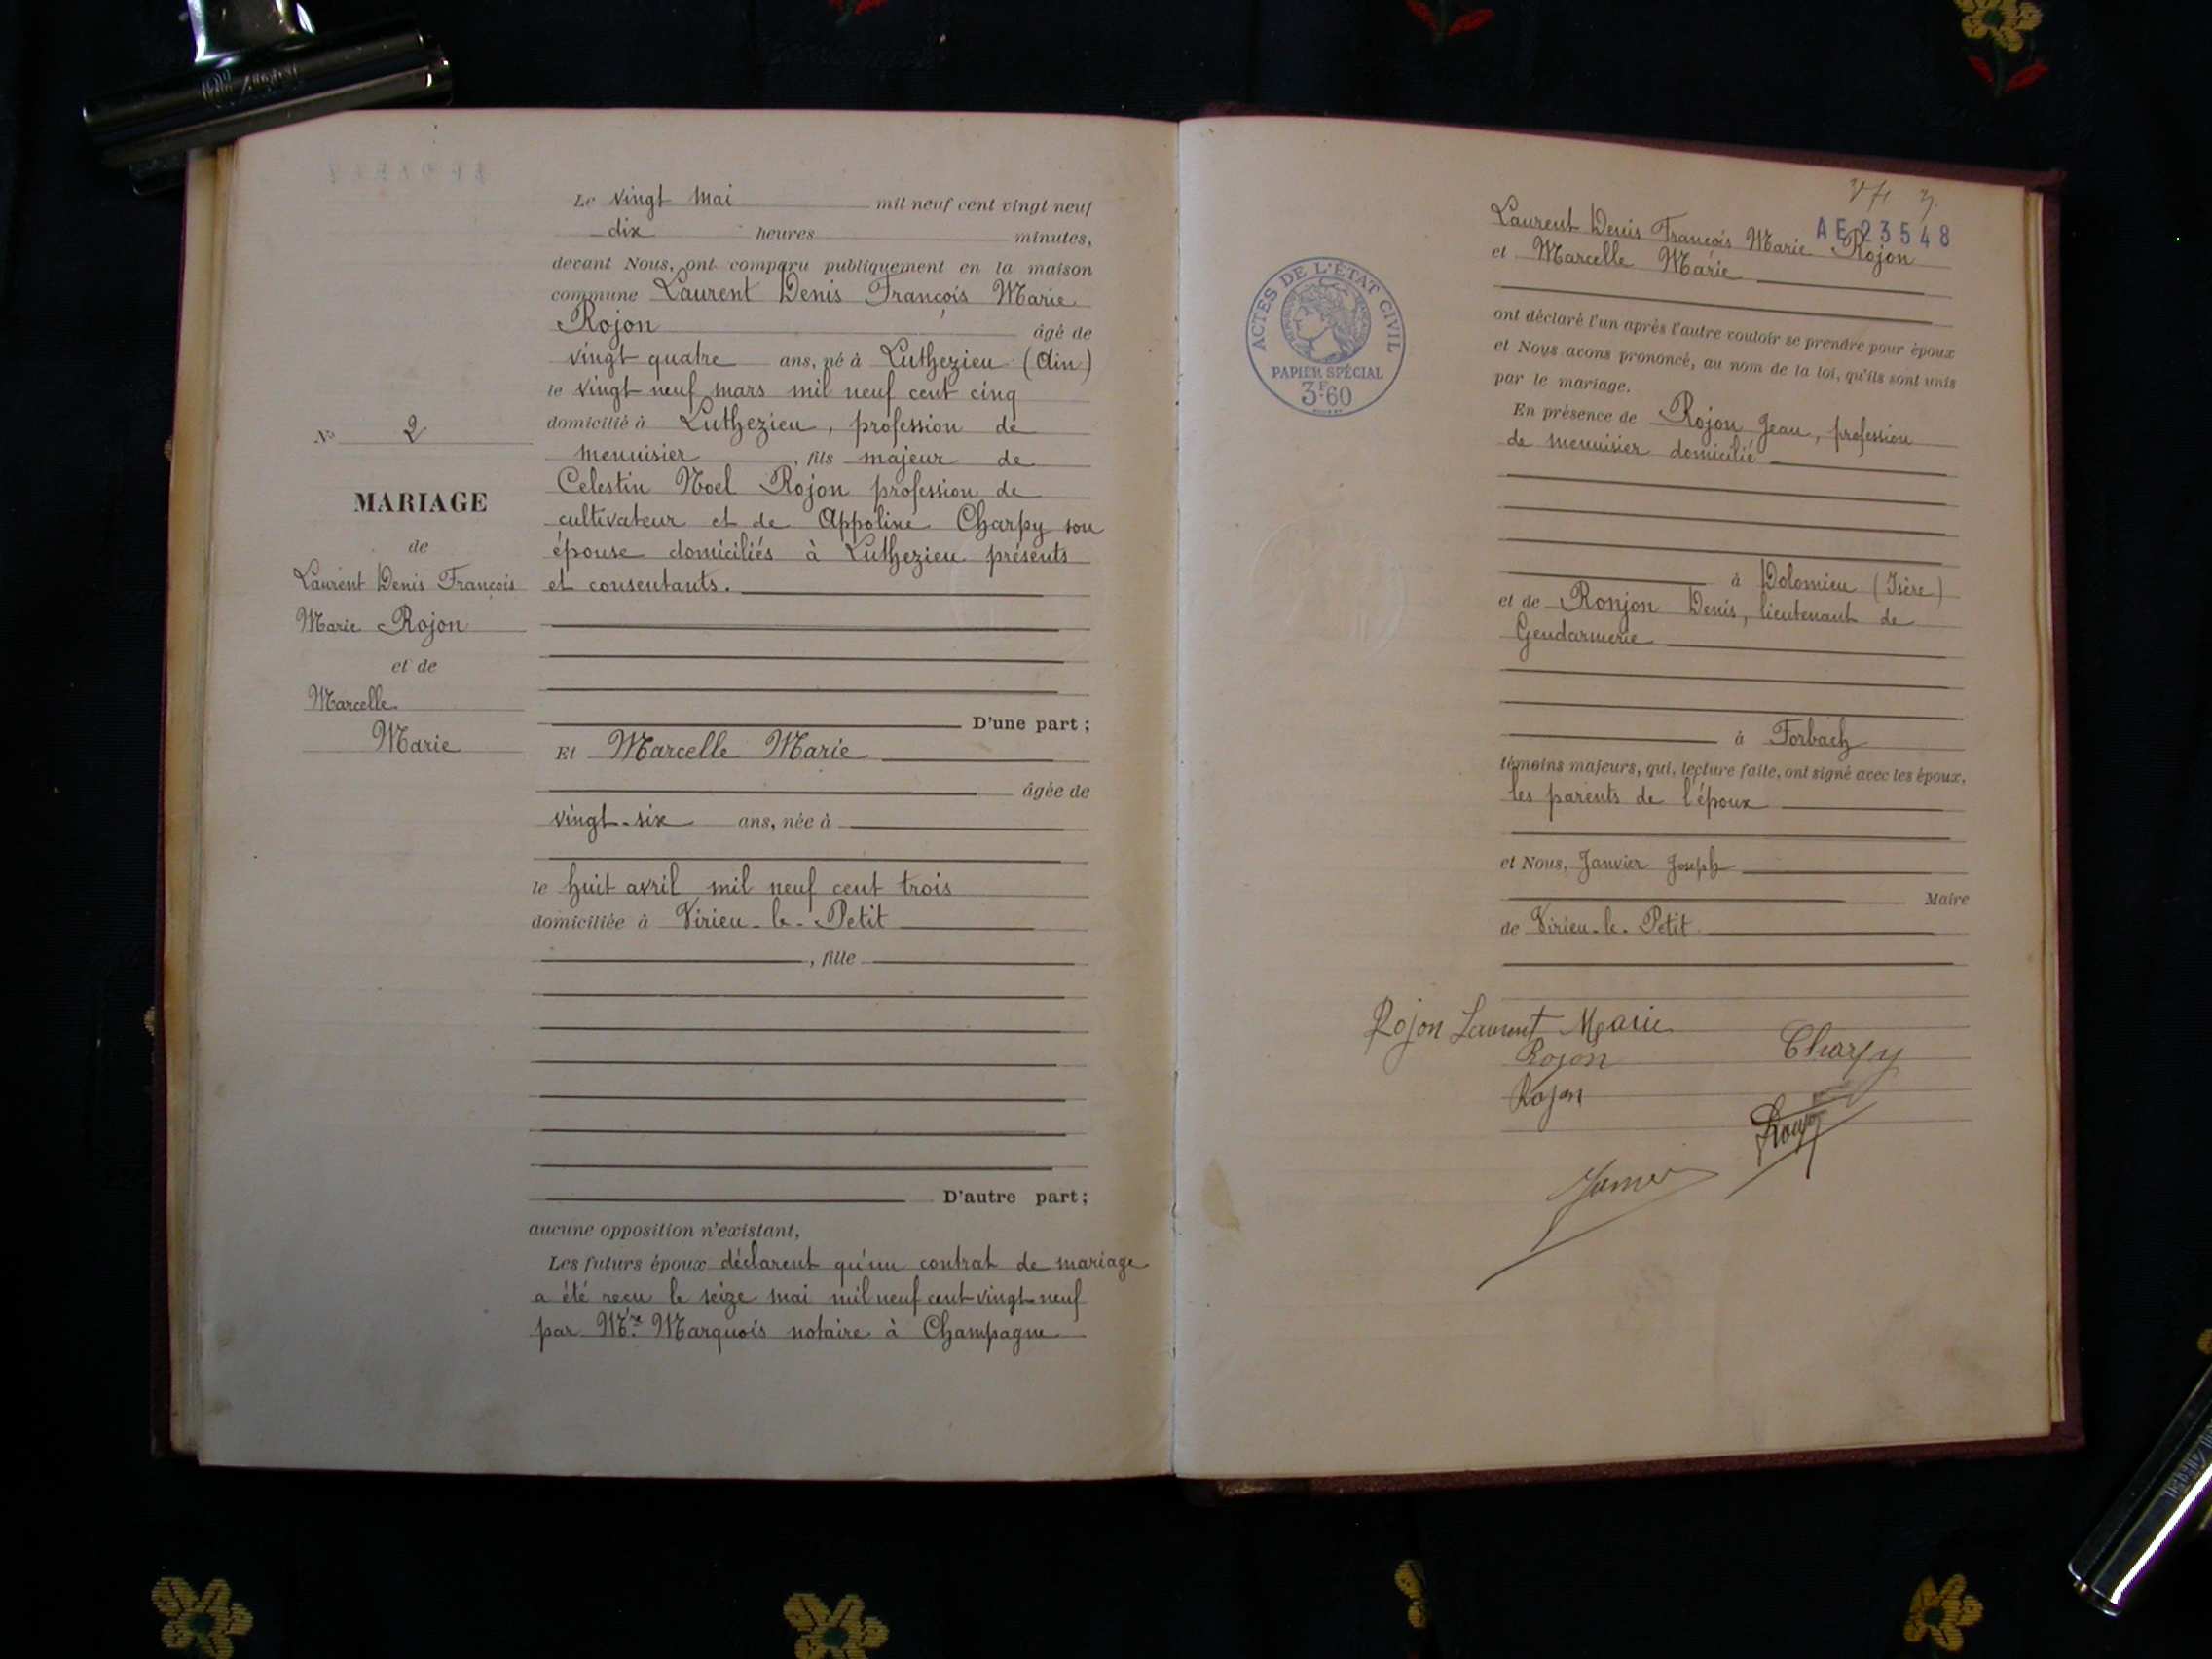 Le vingt mai mil neuf cent vingt neuf
dix heures minutes,
devant Nous, ont comparu publiquement en la maison
commune Laurent Denis François Marie
Rojon âgé de
vingt quatre ans, né à Luthezieu (Ain)
le vingt neuf mars mil neuf cent cinq
domicilié à Luthezieu, profession de
menuisier, fils majeur de
Celestin Noel Rojon profession de
cultivateur et de Appoline Charpy son
épouse domiciliés à Luthezieu présents
et consentants.
D'une part;
Et Marcelle Marie
âgée de
vingt-six ans, née à
le huit avril mil neuf cent trois
domiciliée à Virieu-le-Petit
, fille
D'autre part;
aucune opposition n'existant,
Les futurs époux déclarent qu'un contrat de mariage
a été reçu le seize mai mil neuf cent vingt-neuf
par Mtre Marquois notaire à Champagne
N° 2
MARIAGE
de
Laurent Denis François
Marie Rojon
et de
Marcelle
Marie
AE 23548
Laurent Denis François Marie Rojon
et Marcelle Marie
ACTES DE L'ÉTAT CIVIL
RÉPUBLIQUE FRANÇAISE
PAPIER SPÉCIAL
3F.60
ont déclaré l'un après l'autre vouloir se prendre pour époux
et Nous avons prononcé, au nom de la loi, qu'ils sont unis
par le mariage.
En présence de Rojon Jean, profession
de menuisier domicilié
à Dolomieu (Isère)
et de Ronjon Denis, lieutenant de
Gendarmerie
à Forbach
témoins majeurs, qui, lecture faite, ont signé avec les époux,
les parents de l'époux
et Nous, Janvier Joseph
Maire
de Virieu-le-Petit
Rojon Laurent Marie
Rojon Charpy
Rojon